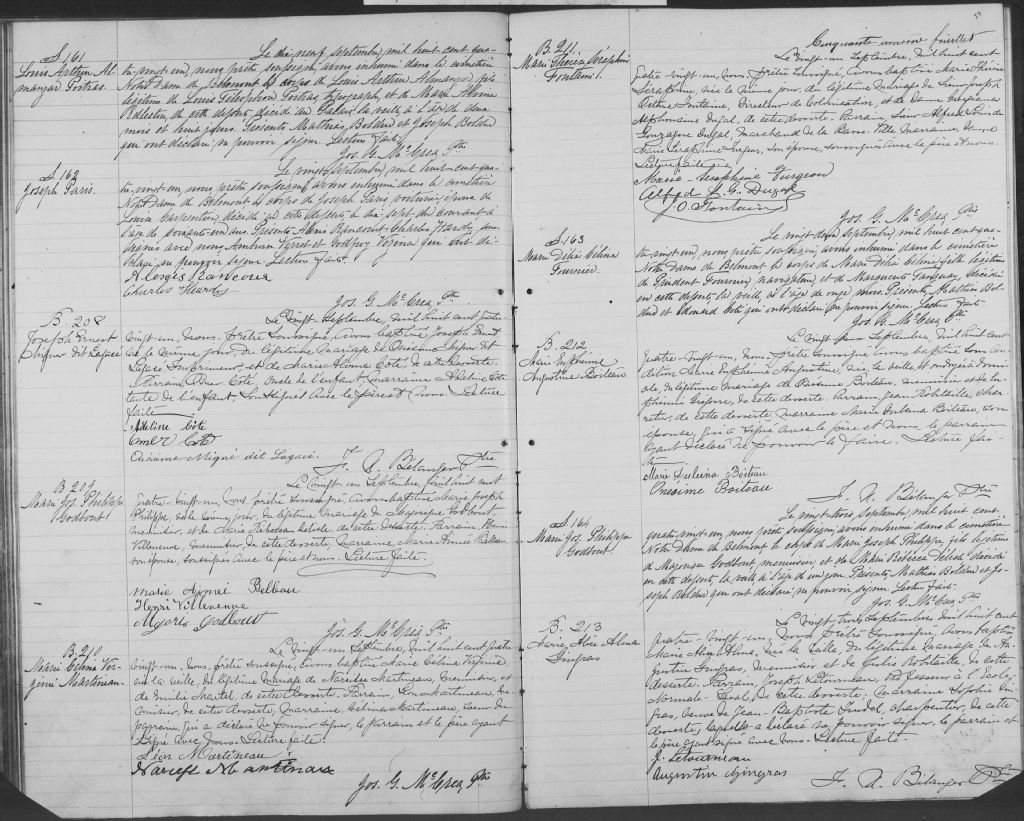 S. 161
Louis Arthur Al-
manzar Fortras.
Le dix neuf septembre, mil huit cent qua-
tre-vingt-un, nous prêtre soussigné, avons inhumé dans le cimetière
Notre Dame de Belmont le corps de Louis Arthur Almanzor, fils
légitime de Louis Télesphore typographe, et de Marie
de cette desserte, décédé au Palais la veille, à l'age de deux
mois et huit jours. Présents, Mathias Bolduc et Joseph Bolduc
qui ont déclaré ne pouvoir signer. Lecture faite.
Jos. G. McCrea, Ptre
S. 162
Joseph Paris.
Le vingt septembre, mil huit-cent-qua-
tre-vingt-un, nous prêtre soussigné, avons inhumé dans le cimetière
Notre Dame de Belmont le corps de Joseph Paris, voiturier, époux de
Louise Carpentier décédé en cette desserte le dix sept du courant à
l'age de soixante-un ans. Présents Alexis Rancourt, Charles Hardy sous-
signés avec nous, et Godfroy Vézina qui ont dé-
claré ne pouvoir signer. Lecture faite.
Alexis Rancour
Charles Heardy
Jos. G. McCrea, Ptre
B. 208
Joseph Ernest
Migner dit Lagacé
Le vingt Septembre, mil huit cent quatre
vingt-un, Nous, prêtre soussigné, avons baptisé Joseph Ernest
né le même jour, du légitime mariage de Onésime Migner dit
Lagacé Imprimeur, et de Marie Alima Coté, de cette desserte.
Parrain Omer Coté, oncle de l'enfant, marraine Adeline Coté
tante de l'enfant, soussignés avec le père et nous. Lecture
faite
Adeline Côté
Omer Coté
Onésime Migné dit Lagacé.
F. X. Bélanger Ptre
B. 209
Marie Jos. Philippe
Godbout.
Le vingt-un Septembre, mil huit cent
quatre-vingt-un, Nous, prêtre soussigné, avons baptisé Marie Joseph
Philippe, né le même jour, du légitime mariage de Majorique Godbout,
menuisier, et de Marie Rébecca Delisle, de cette desserte. Parrain, Henri
Villeneuve, menuisier, de cette desserte, marraine, Marie Aimée Belleau
son épouse, soussignés avec le père et nous. Lecture faite.
Marie Aimée Belleau
Henri Villeneuve
Mjorls Godbout
Jos. G. McCrea Ptre
B. 210
Marie Celina Vir-
ginie Martineau.
Le vingt-un Septembre, mil huit cent quatre
vingt-un, Nous, prêtre soussigné, avons baptisé Marie Celina Virginie,
née la veille, du légitime mariage de Narcisse Martineau, menuisier, et
de Emilie Martel, de cette desserte. Parrain, Léon Martineau, me-
nuisier, de cette desserte, marraine, Celina Martineau, soeur du
parrain, qui a déclaré ne pouvoir signer, le parrain et le père ayant
signé avec nous. Lecture faite.
Léon Martineau
Narcisse Martinau
Jos. G. McCrea, Ptre
Cinquante unième feuillet
B. 211.
Marie Thérèse Séraphine
Fontaine.
Le vingt-un Septembre, mil huit cent
quatre-vingt-un, Nous, prêtre soussigné, avons baptisé Marie Thérèse
Séraphine, née le même jour, du légitime mariage de Sieur Joseph
Octave Fontaine, Directeur de Colonisation, et de Dame Georgiana
Alphonsine Dugal, de cette desserte. Parrain, Sieur Alfred Louis de
Gonzague Dugal, marchand de la Basse-Ville marraine, Dame
Marie Séraphine Turgeon, son épouse, soussignés avec le père et nous.
Lecture faite
Marie-Séraphine Turgeon
Alfred L. G. Dugal
J. O. Fontaine
Jos. G. McCrea, Ptre
S. 163
Marie Délia Célina
Fournier.
Le vingt-deux Septembre, mil huit cent qua-
tre-vingt-un, nous prêtre soussigné, avons inhumé dans le cimetière
Notre Dame de Belmont le corps de Marie Délia Célina, fille légitime
de Prudent Fournier, navigateur, et de Marguerite Tanguay, décédée
en cette desserte la veille à l'age de onze mois. Présents, Mathias Bol-
duc et Edouard Coté qui ont déclaré ne pouvoir signer. Lecture faite
Jos. G. McCrea Ptre
B. 212
Marie Euphémie
Augustine Boiteau
Le vingt Septembre, mil huit cent
quatre-vingt-un, Nous, prêtre soussigné, avons baptisé sous con-
dition Marie Euphémie Augustine, née la veille, et ondoyée à domi-
cile, du légitime mariage de Onésime Boiteau, menuisier et de Eu-
phémie Grégoire, de cette desserte. Parrain, Jean Robitaille, char-
retier, de cette desserte, marraine Marie Boiteau, son
épouse, qui a signé avec le père et nous le parrain
ayant déclaré ne pouvoir le faire. Lecture fai-
te
Marie Boiteau
Onésime Boiteau
F. X. Bélanger Ptre
S. 164
Marie Jos. Philippe
Godbout.
Le vingt-trois Septembre, mil huit cent
quatre-vingt-un, nous prêtre soussigné, avons inhumé dans le cimetière
Notre Dame de Belmont le corps de Marie Joseph Philippe, fils légitime
de Majorique Godbout menuisier, et de Marie Rébecca Delisle décédé
en cette desserte, la veille à l'age de un jour. Présents, Mathias Bolduc et Jo-
seph Bolduc qui ont déclaré ne pouvoir signer. Lecture faite.
Jos. G. McCrea, Ptre
B. 213
Marie Alice Alma
Gingras
Le vingt-trois Septembre, mil huit cent
quatre-vingt-un, Nous prêtre soussigné, avons baptisé
Marie Alice Alma, née la veille, du légitime mariage de Au-
gustin Gingras, menuisier et de Julie Robitaille, de cette
desserte. Parrain, Joseph Létourneau, Professeur à l'Ecole
Normale-Laval, de cette desserte, marraine Sophie Gin-
gras, veuve de Jean-Baptiste Trudel, charpentier, de cette
desserte, laquelle a déclaré ne pouvoir signer, le parrain et
le père ayant signé avec nous. Lecture faite
J. Letourneau
Augustin Gingras
F. X. Bélanger Ptre